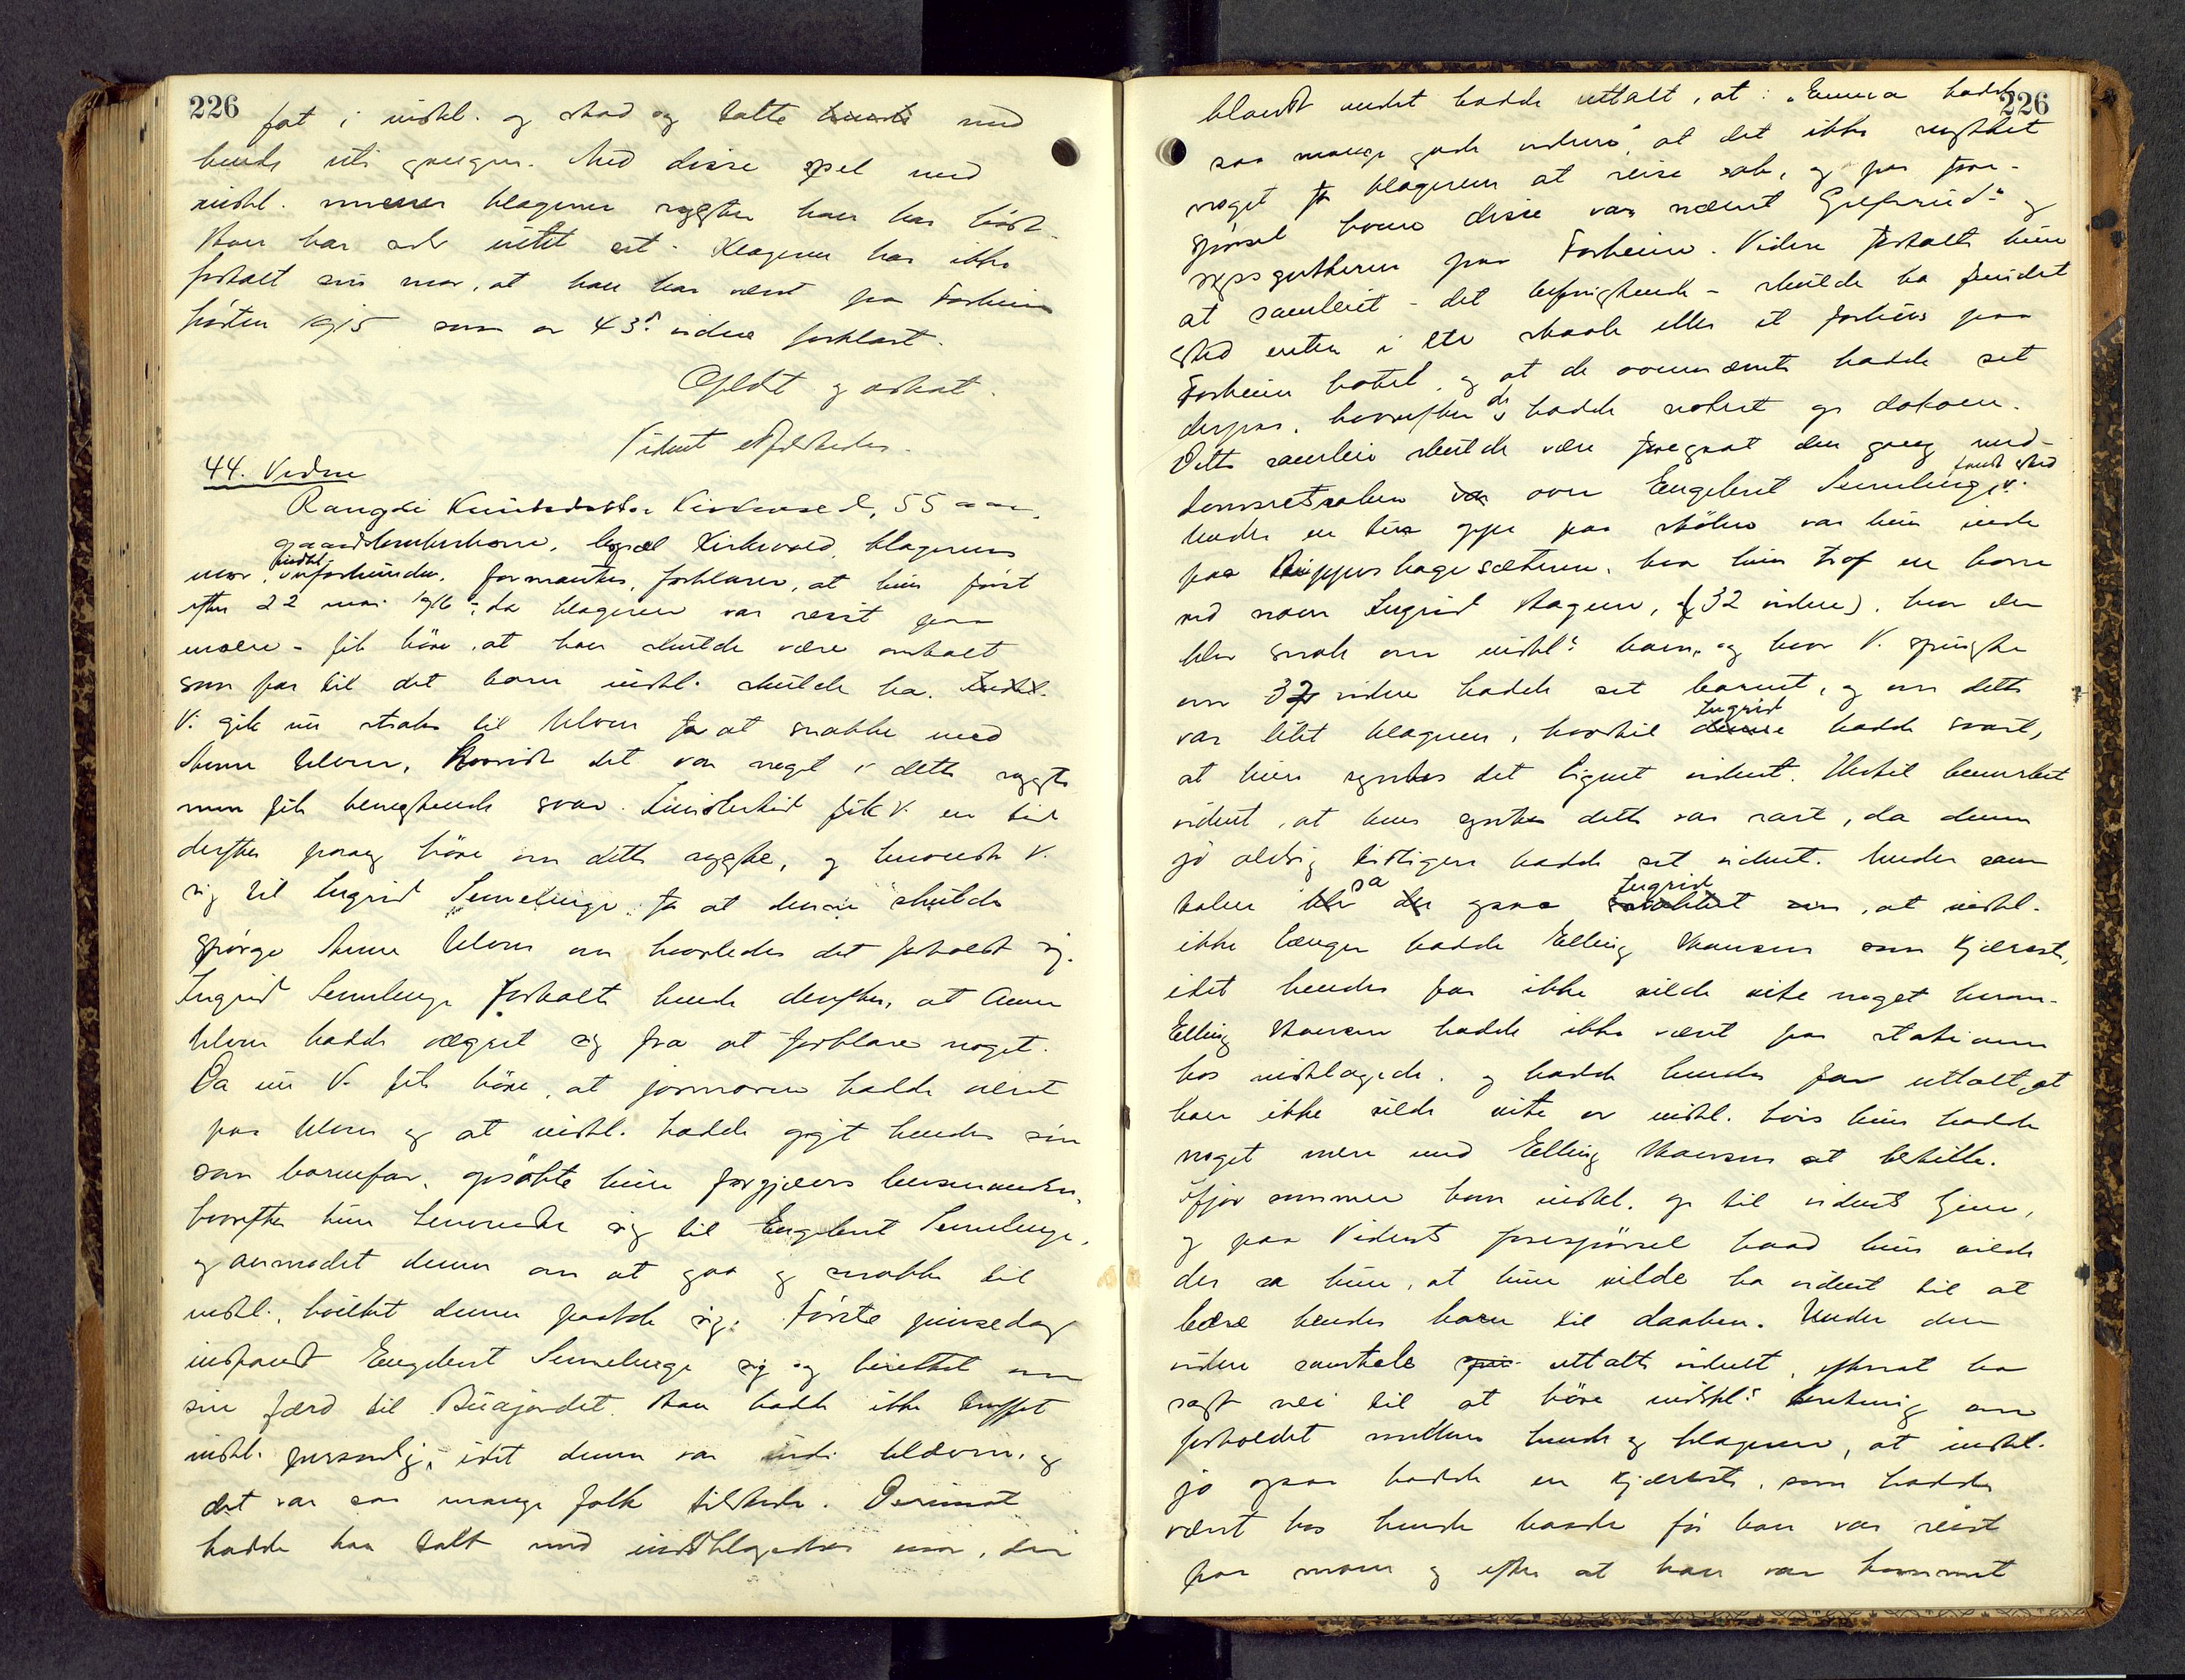 226
fat i indkl. og stod og talte hende med
hende uti gangen. Med disse spel med
indkl. mener klageren rygter han har hørt.
Han har selv intet set. Klageren har ikke
fortalt sin mor, at han har vært paa Forheim
høsten 1915 som av 43de vidne forklart.
Oplæst og vedtat.
Vidnet afskediges.
44. Vidne
Rangdi Knutsdatter Kirkevold, 55 aar,
gaardbrukerkone, Kirkevold, klagerens
mor, indkl. uforbunden, formantes, forklarer, at hun først
efter 22 mai 1916 - da klageren var reist paa
moen - fik høre, at han skulde være omtalt
som far til det barn indkl. skulde ha. Indkl.
V. gik nu straks til Ulven for at snakke med
Anne Ulven, hvorvidt det var noget i dette rygte
men fik benegtende svar. Imidlertid fik V. en tid
derefter paany høre om dette rygte, og henvendte V.
sig til Ingrid Semelenge for at denne skulde
spørge Anne Ulven om hvorledes det forholdt sig.
Ingrid Semelenge fortalte hende derefter, at Anne
Ulven hadde vægret sig fra at forklare noget.
Da nu V. fik høre, at jormoren hadde været
paa Ulven og at indkl. hadde opgit hendes søn
som barnefar, opsøkte hun forgjæves lensmanden,
hvorefter hun henvendte sig til Engebret Semelenge,
og anmodet denne om at gaa og snakke til
indkl., hvilket denne paatok sig. Første pinsedag
indfandt Engebret Semelenge sig og berettet om
sin færd til Buajordet. Han hadde ikke truffet
indkl. personlig, idet denne var inde i kleven, og
det var saa mange folk tilstede. Derimot
hadde han talt med indklagedes mor, der
226
blandt andet hadde uttalt, at: "Emma hadde
saa mange gode vidner", at det ikke nyttet
noget for klageren at reise sak, og paa fore-
spørsel hvem disse var nævnt Grefsrud- og
gutterne paa Forheim. Videre fortalte hun
at samleiet - det befrugtende - skulde ha fundet
sted enten i ete skaale eller et forhus paa
Forheim hotel, og at de ovennævnte hadde set
derpaa, hvorefter de hadde notert op datoen.
Dette samleie skulde være foregaat den gang med-
domsretsaken var over Engebret Semelenge fandt sted.
Under en tur oppe paa støles var hun inde
paa Ruppershage sæteren, hvor hun traf en kone
ved navn Ingrid Hagene, (32 vidne), hvor der
blev snak om indkl.s barn, og hvor V. spurgte
om 32 vidne hadde set barnet, og om dette
var likt klageren, hvortil denne Ingrid hadde svart,
at hun syntes det lignet vidnet. Hertil bemerket
vidnet, at hun syntes dette var rart, da denne
jo aldrig tidligere hadde set vidnet. Under sam
talen blev der sa ogsaa Ingrid, at indkl.
ikke længer hadde Elling Hansen som kjæreste,
idet hendes far ikke vilde vite noget herom.
Elling Hansen hadde ikke vært paa stationen
hos indklagede, og hadde hendes far uttalt, at
han ikke vilde vite av indkl. hvis hun hadde
noget mere med Elling Hansen at bestille.
Ifjor sommer kom indkl. op til vidnets hjem,
og paa Vidnets forespørsel hvad hun vilde
der sa hun, at hun vilde ha vidnet til at
bære hendes barn til daaben. Under den
videre samtale uttalte vidnet, efterat ha
sagt nei til at høre indkl.s beretning om
forholdet mellem hende og klageren, at indkl.
jo ogsaa hadde en kjæreste, som hadde
været hos hende baade før han var reist
paa moen og efter at han var kommet